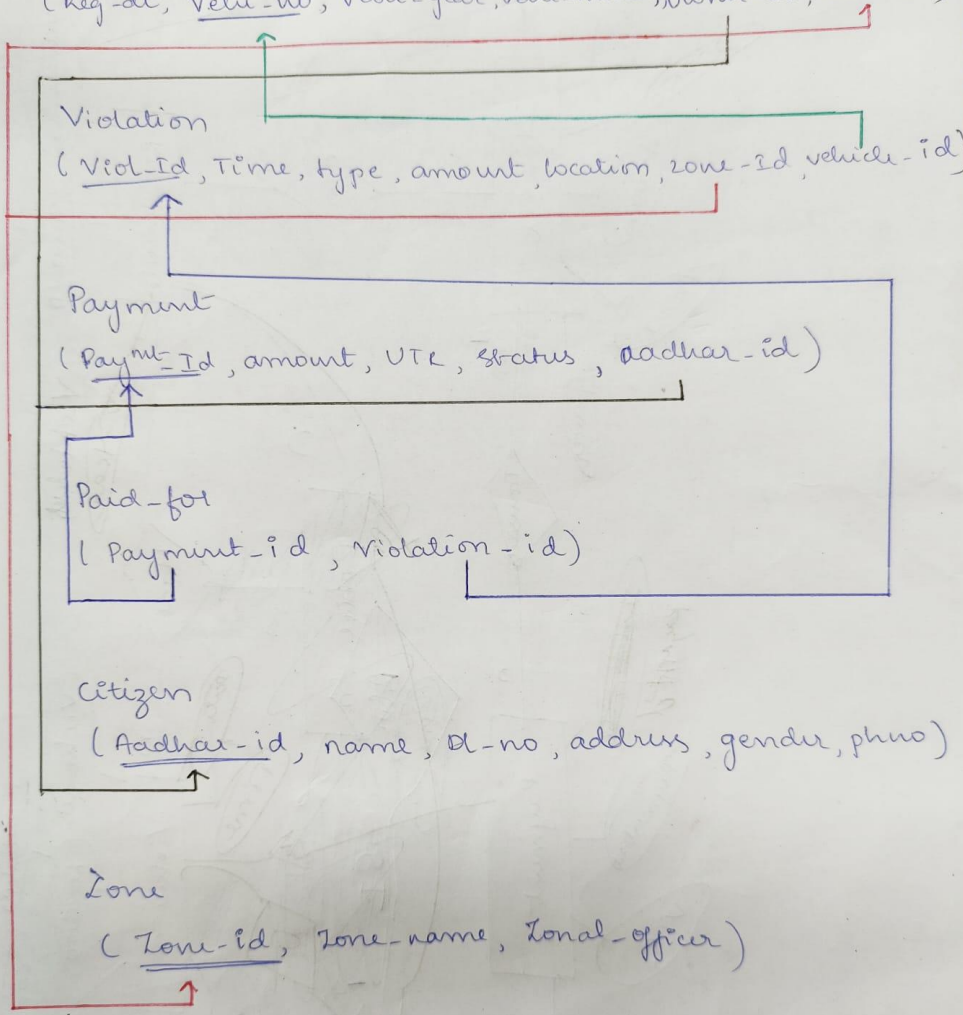 (Reg-
Violation
(Viol-Id, Time, type, amount, location, zone-Id, vehicle-id)
Payment
(Paymt-Id, amount, UTR, status, aadhar-id)
Paid-for
(Payment-id, violation-id)
Citizen
(Aadhar-id, name, Dl-no, address, gender, phno)
Zone
(Zone-id, Zone-name, Zonal-officer)